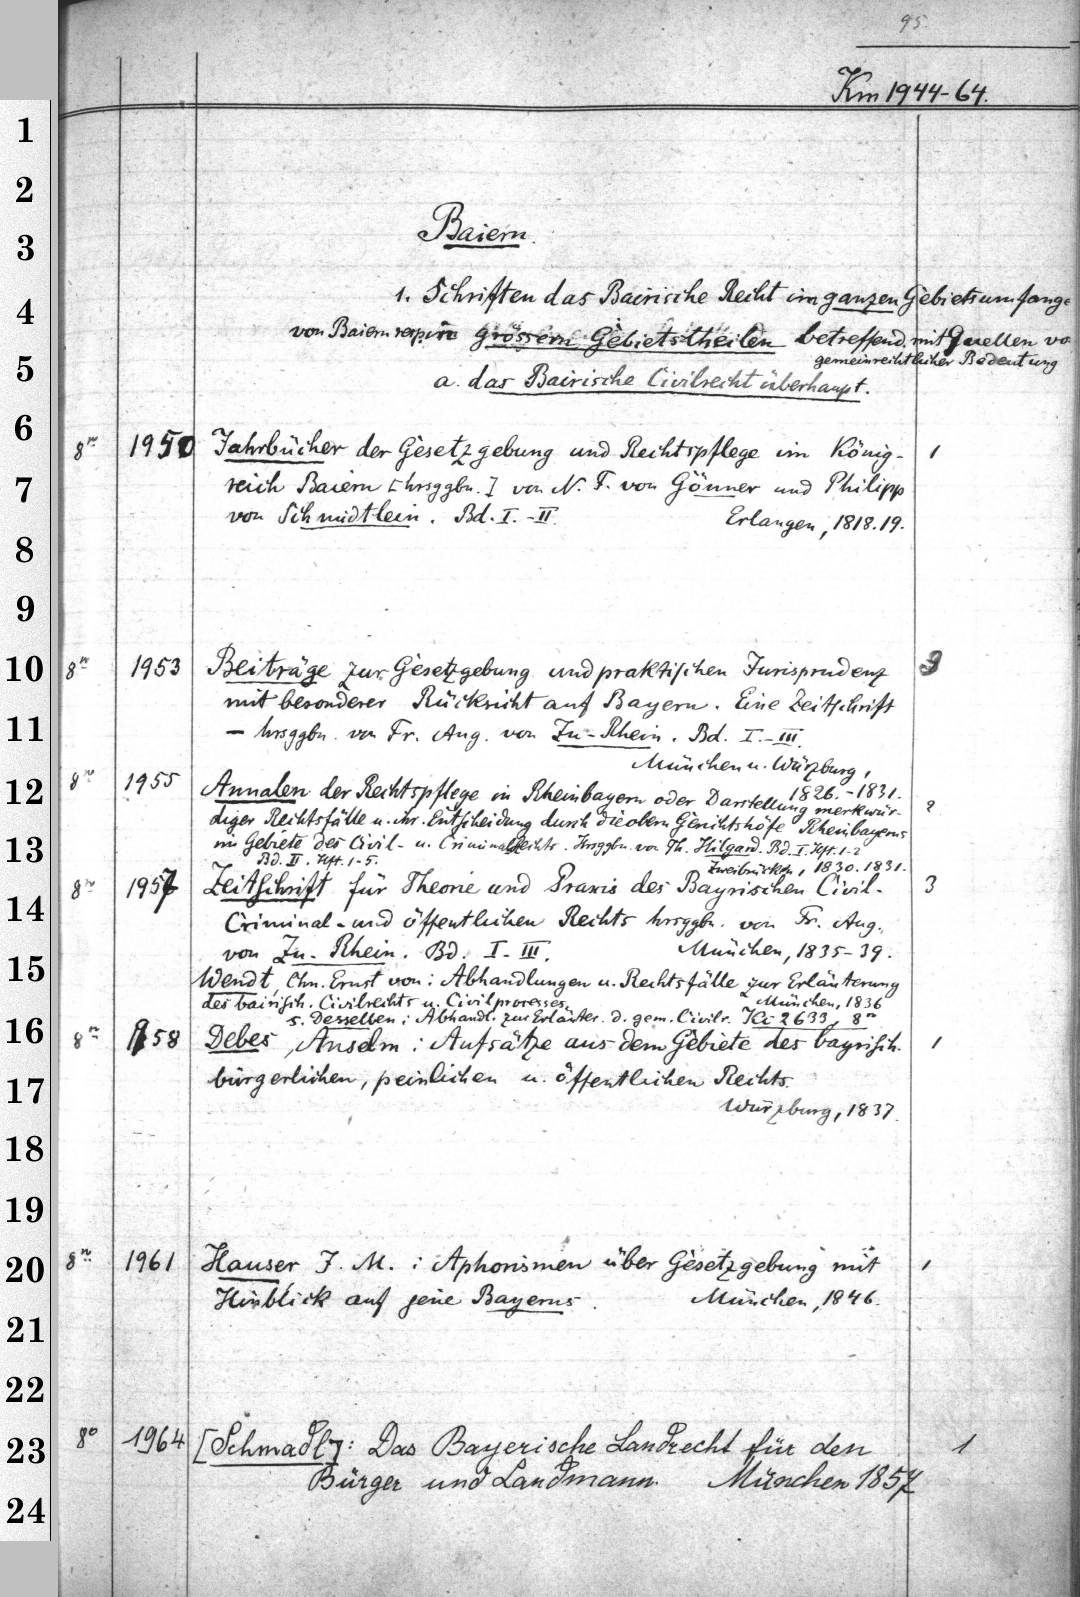 95.
Km 1944-64.
Baiern.
1. Schriften das Bairische Recht im ganzen Gebietsumfange
von Baiern resp. in grössern Gebietstheilen betreffend. mit Quellen vo
gemeinrechtlicher Bedeutung
a. das Bairische Civilrecht überhaupt.
8º 1950 Jahrbücher der Gesetzgebung und Rechtspflege im König- 1
reich Baiern [hrsggbn.] von N. F. von Gönner und Philipp
von Schmidtlein. Bd. I.-II. Erlangen, 1818.19.
8º 1953 Beiträge zur Gesetzgebung und praktischen Jurisprudenz 3
mit besonderer Rücksicht auf Bayern. Eine Zeitschrift
– hrsggbn. von Fr. Aug. von Zu-Rhein. Bd. I.-III.
München u. Würzburg,
1826.-1831.
8º 1955 Annalen der Rechtspflege in Rheinbayern oder Darstellung merkwür- 2
diger Rechtsfälle u. ihr. Entscheidung durch die obern Gerichtshöfe Rheinbayerns
im Gebiete des Civil- u. Criminalrechts. Hrsggbn. von Th. Hilgard. Bd. I. Hft. 1-2
Bd. II. Hft. 1-5. Zweibrücken, 1830.1831.
8º 1957 Zeitschrift für Theorie und Praxis des Bayrischen Civil- 3
Criminal- und öffentlichen Rechts hrsggbn. von Fr. Aug.
von Zu-Rhein. Bd. I-III. München, 1835-39.
Wendt, Chn. Ernst von: Abhandlungen u. Rechtsfälle zur Erläuterung
des bairisch. Civilrechts u. Civilprocesses. München, 1836
s. Desselben: Abhandl. zur Erläuter. d. gem. Civilr. Kc 2633, 8º
8º 1958 Debes, Anselm: Aufsätze aus dem Gebiete des bayrisch. 1
bürgerlichen, peinlichen u. öffentlichen Rechts.
Würzburg, 1837.
8º 1961 Hauser J. M.: Aphorismen über Gesetzgebung mit 1
Hinblick auf jene Bayerns. München, 1846.
8º 1964 [Schmadl]: Das Bayerische Landrecht für den 1
Bürger und Landmann. München 1857
1
2
3
4
5
6
7
8
9
10
11
12
13
14
15
16
17
18
19
20
21
22
23
24